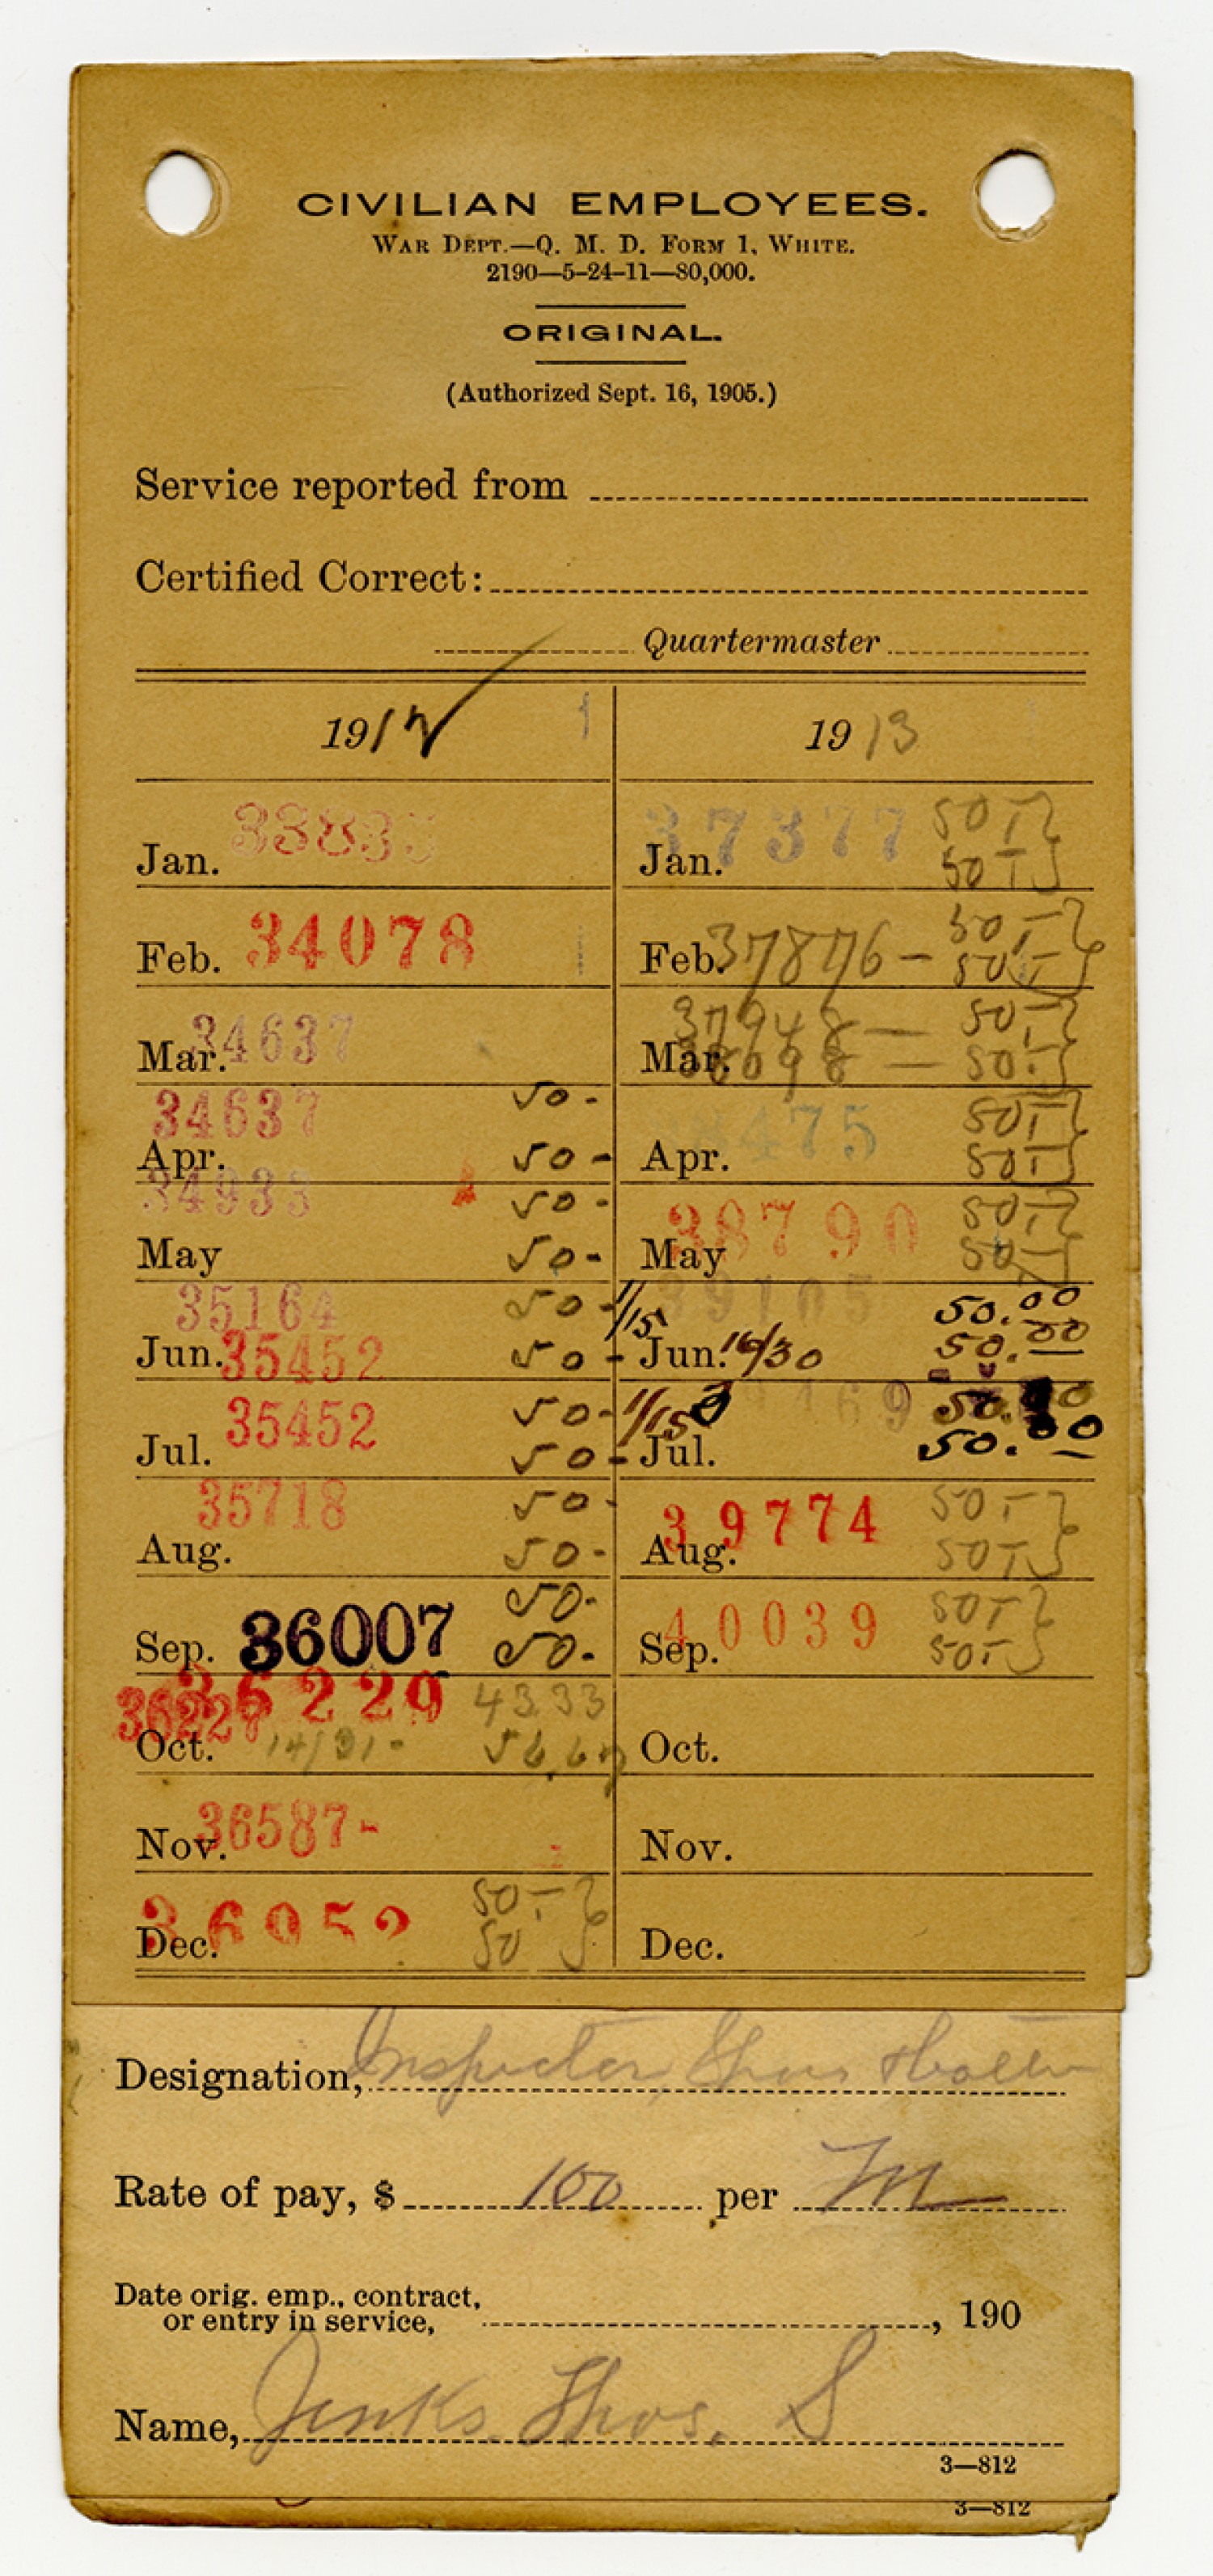 CIVILIAN EMPLOYEES.
WAR DEPT.—Q. M. D. FORM 1, WHITE.
2190—5-24-11—80,000.
ORIGINAL.
(Authorized Sept. 16, 1905.)
Service reported from
Certified Correct:
Quartermaster
1912 1913
Jan. 3383 Jan. 37377 50
50
Feb. 34078 Feb. 37876 - 50
50
Mar. 34637 Mar. 37948 — 50
38098 — 50
34637 50-
Apr. 50- Apr. 8475 50
50
34933 50-
May 50- May 38790 50
50
35164 50- 1/15 39105 50.00
Jun. 35452 50- Jun. 16/30 50.00
35452 50- 1/15 9469 50.00
Jul. 50- Jul. 50.00
35718 50- 39774 50
Aug. 50- Aug. 50
50-
Sep. 36007 50- Sep. 40039 50
50
36229 36229 43.33
Oct. 14/31- 56.67 Oct.
Nov. 36587- Nov.
Dec. 36952 50
50 Dec.
Designation, Inspector,
Rate of pay, $ 100 per M
Date orig. emp., contract,
or entry in service, , 190
Name, Jenks, Thos. S
3—812
3—812